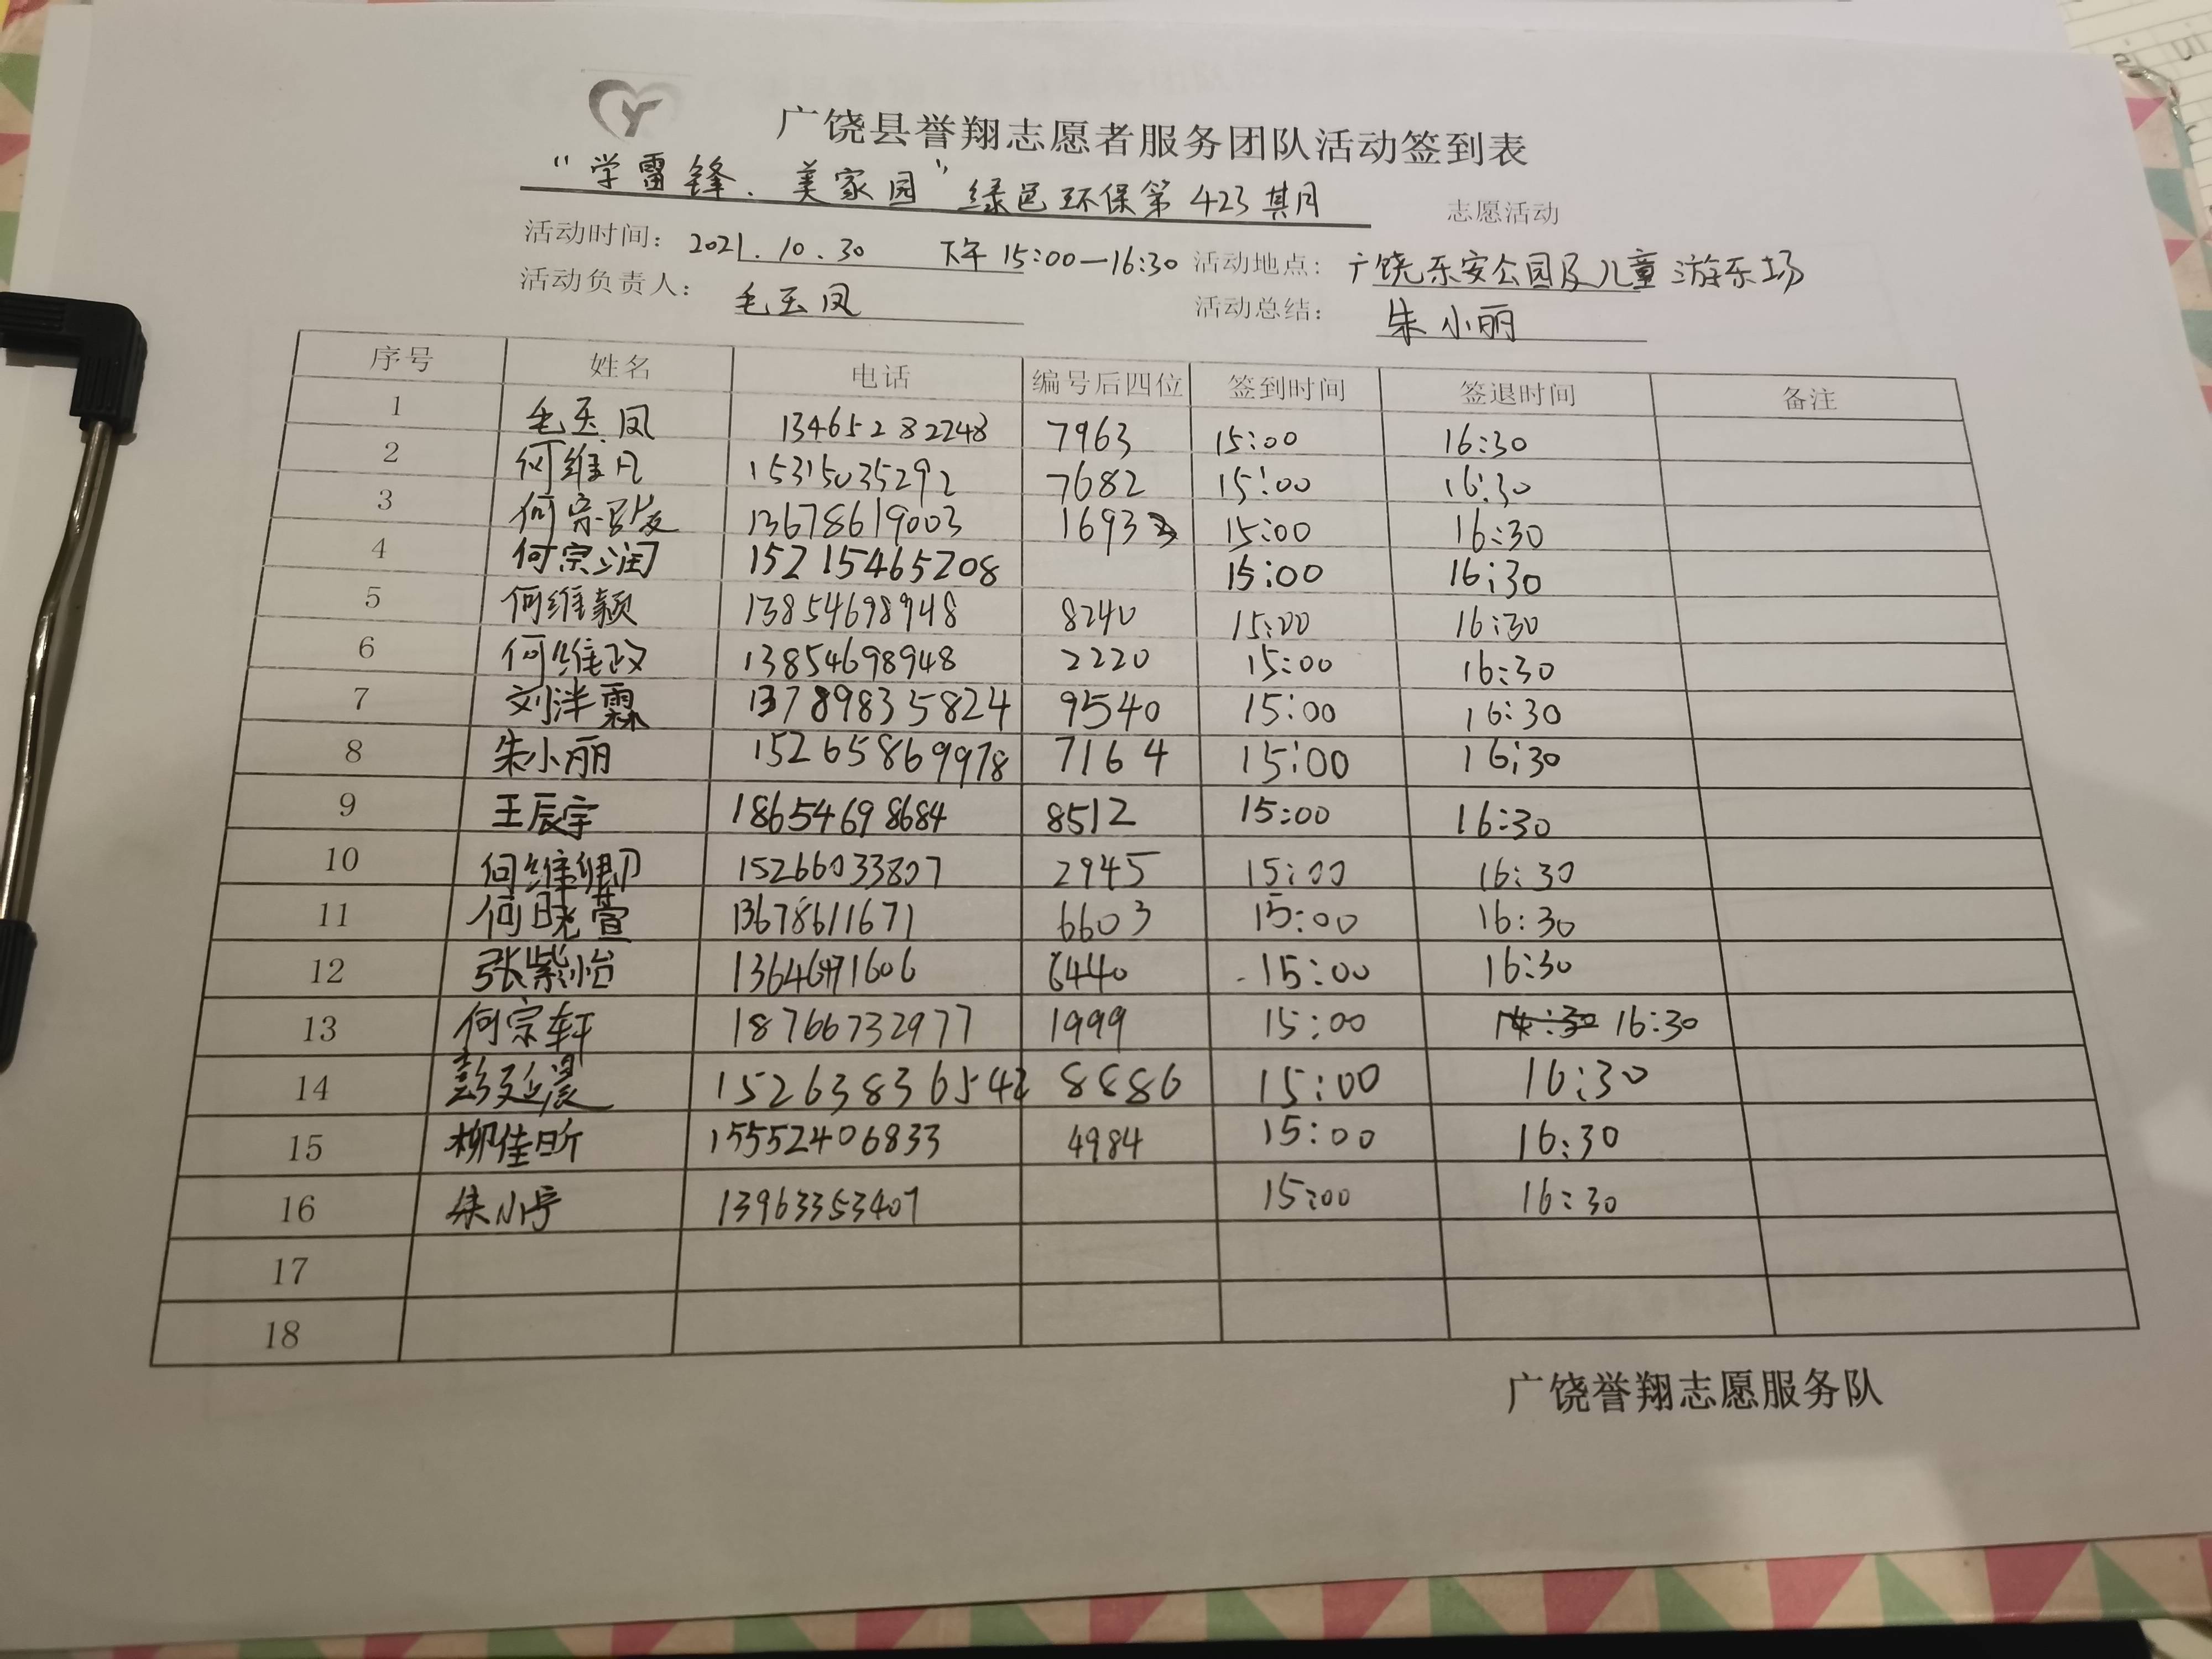 广饶县誉翔志愿者服务团队活动签到表
“学雷锋、美家园”绿色环保第423期 志愿活动
活动时间：2021.10.30 下午15:00—16:30 活动地点：广饶乐安公园及儿童游乐场
活动负责人：毛玉凤 活动总结：朱小丽
序号 姓名 电话 编号后四位 签到时间 签退时间 备注
1 毛玉凤 13465282248 7963 15:00 16:30
2 何维凡 15315035292 7682 15:00 16:30
3 何宗 13678619003 1693 15:00 16:30
4 何宗润 15215465208 15:00 16:30
5 何维颖 13854698948 8240 15:00 16:30
6 何维政 13854698948 2220 15:00 16:30
7 刘洋霖 13789835824 9540 15:00 16:30
8 朱小丽 15265869978 7164 15:00 16:30
9 王辰宇 18654698684 8512 15:00 16:30
10 何维卿 15266033807 2945 15:00 16:30
11 何晓萱 13678611671 6603 15:00 16:30
12 张紫怡 6440 15:00 16:30
13 何宗轩 18766732977 1999 15:00 16:30
14 彭延晨 15263836542 8886 15:00 16:30
15 柳佳昕 15552406833 4984 15:00 16:30
16 朱小宁 13963353407 15:00 16:30
17
18
广饶誉翔志愿服务队